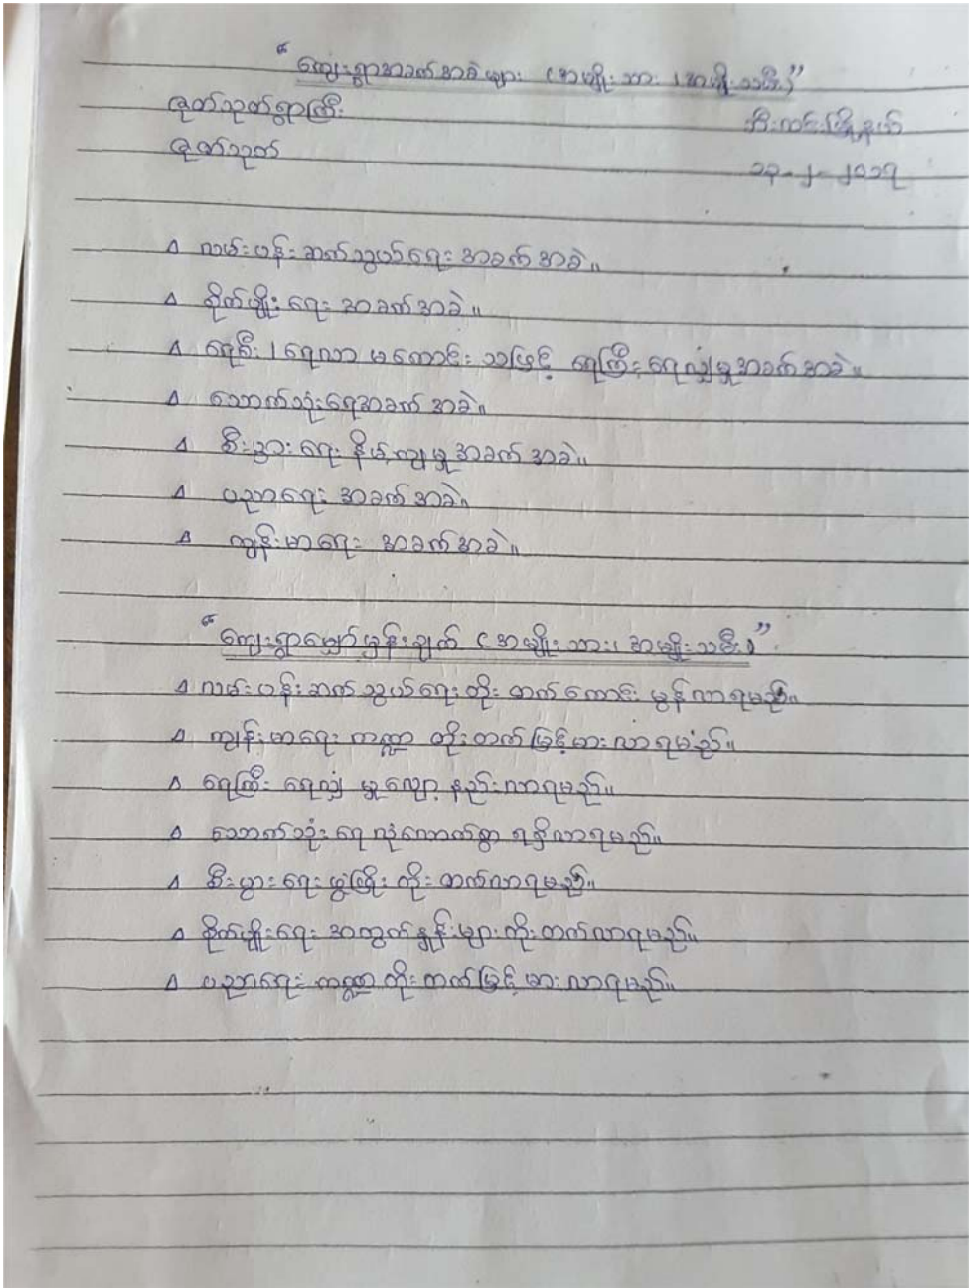 “ ကျေးရွာအခက်အခဲများ (အမျိုးသား၊အမျိုးသမီး)”
ဇုတ်သုတ်ရွာကြီး ဘီးလင်းမြို့နယ်
ဇုတ်သုတ် ၁၃-၂-၂၀၁၇
∆ လမ်းပန်းဆက်သွယ်ရေး အခက်အခဲ။
∆ စိုက်ပျိုးရေး အခက်အခဲ။
∆ ရေစီး၊ရေလာ မကောင်းသဖြင့် ရေကြီးရေလျှံမှုအခက်အခဲ။
∆ သောက်သုံးရေအခက်အခဲ။
∆ စီးပွားရေး နိမ့်ကျမှုအခက်အခဲ။
∆ ပညာရေး အခက်အခဲ။
∆ ကျန်းမာရေး အခက်အခဲ။
“ ကျေးရွာမျှော်မှန်းချက် (အမျိုးသား၊ အမျိုးသမီး)”
∆ လမ်းပန်းဆက်သွယ်ရေးတိုးတက်ကောင်းမွန်လာရမည်။
∆ ကျန်းမာရေး ကဏ္ဍ တိုးတက်မြင့်မားလာရမည်။
∆ ရေကြီး ရေလျှံ မှုလျော့နည်းလာရမည်။
∆ သောက်သုံးရေ လုံလောက်စွာ ရရှိလာရမည်။
∆ စီးပွားရေးဖွံ့ဖြိုး တိုးတက်လာရမည်။
∆ စိုက်ပျိုးရေး အထွက်နှုန်းများတိုးတက်လာရမည်။
∆ ပညာရေး ကဏ္ဍတိုးတက်မြင့်မားလာရမည်။